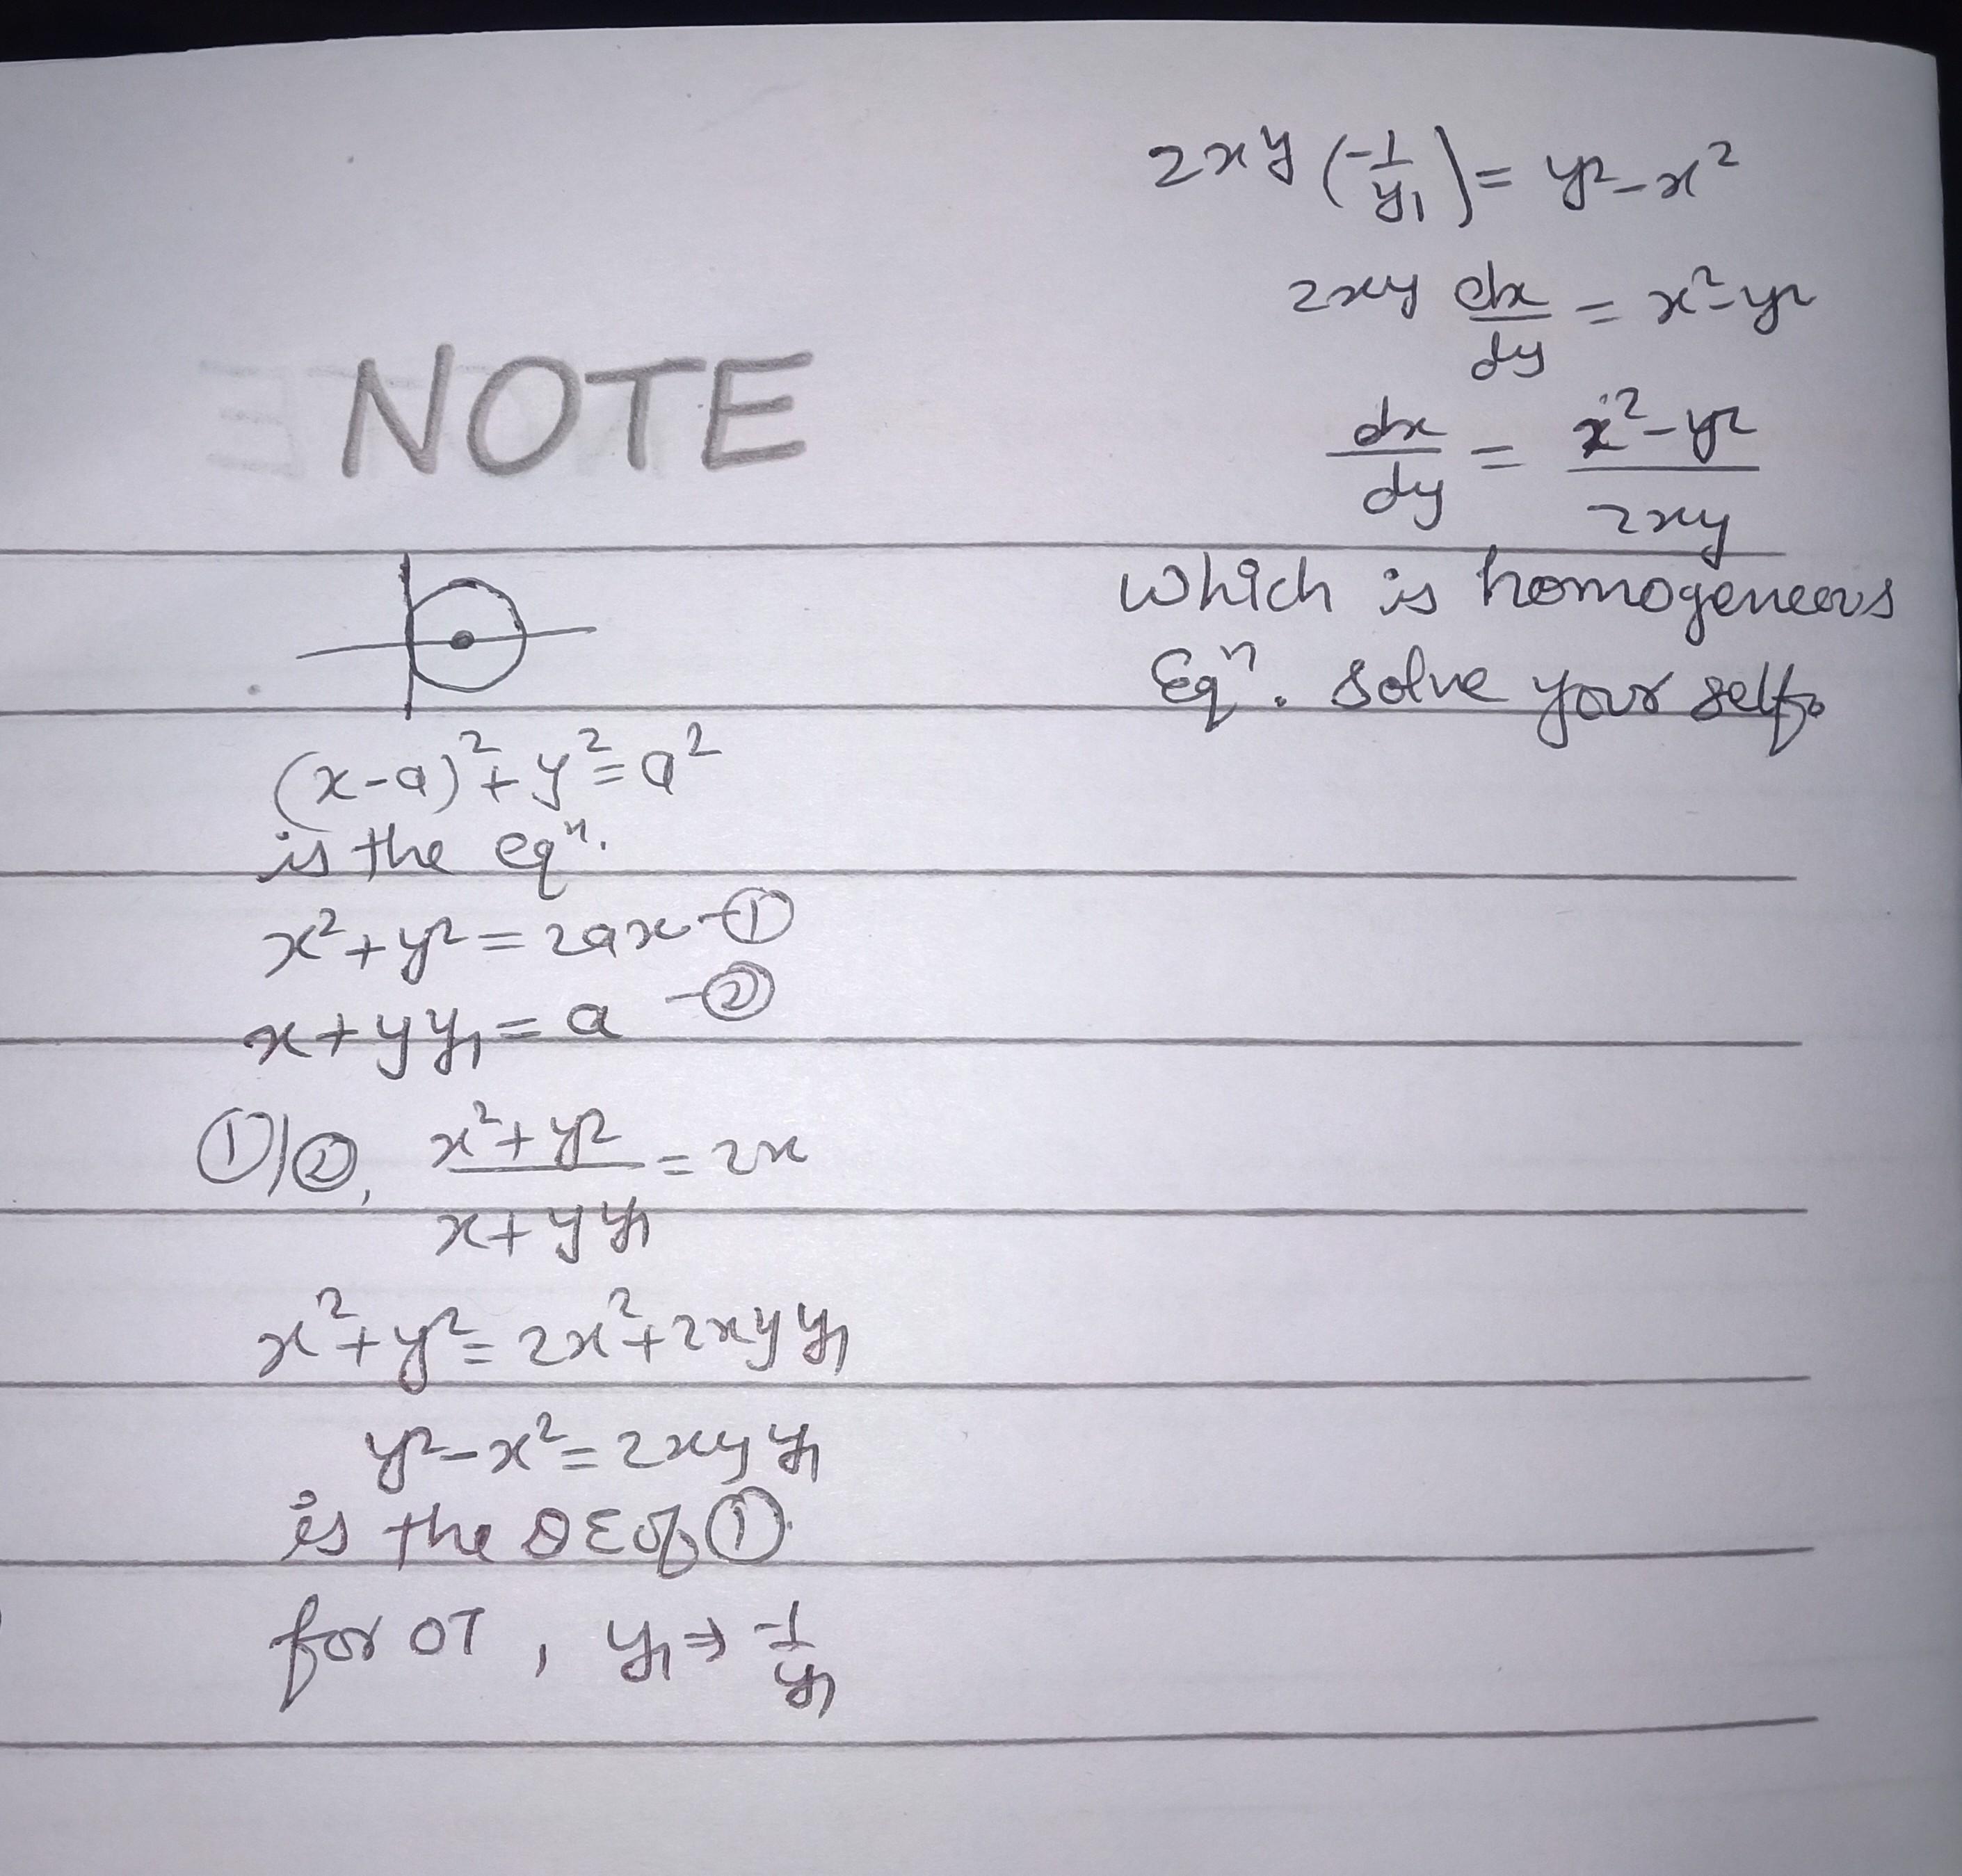 NOTE
(x-a)²+y²=a²
is the eqⁿ.
x²+y²=2ax-①
x+yy₁=a -②
①/②, x²+y²/x+yy₁ = 2x
x²+y²=2x²+2xyy₁
y²-x²=2xyy₁
is the DE of ①.
for OT, y₁⇒-1/y₁
2xy(-1/y₁)=y²-x²
2xy dx/dy = x²-y²
dx/dy = x²-y²/2xy
which is homogeneous
Eqⁿ. solve your self.